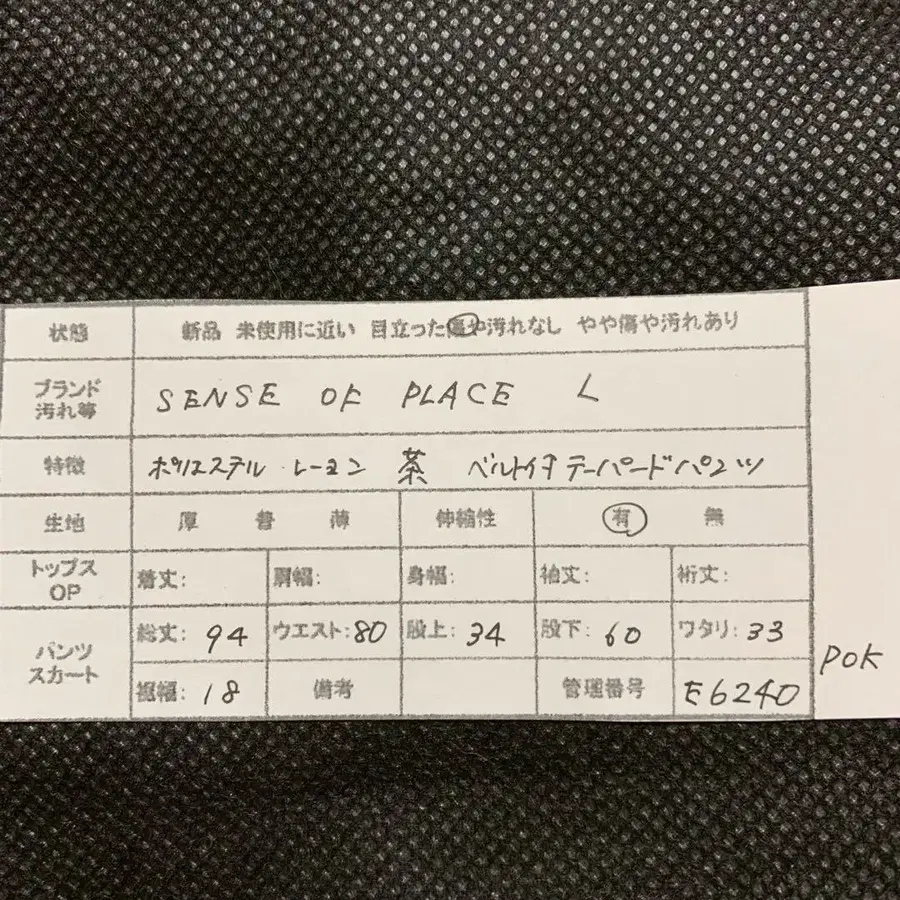 状態 新品 未使用に近い 目立った傷や汚れなし やや傷や汚れあり
ブランド
汚れ等 SENSE OF PLACE L
特徴 ポリエステル・レーヨン 茶 ベルト付テーパードパンツ
生地 厚 普 薄 伸縮性 有 無
トップス
OP 着丈: 肩幅: 身幅: 袖丈: 裄丈:
パンツ
スカート 総丈: 94 ウエスト: 80 股上: 34 股下: 60 ワタリ: 33
裾幅: 18 備考 管理番号 E6240
POK